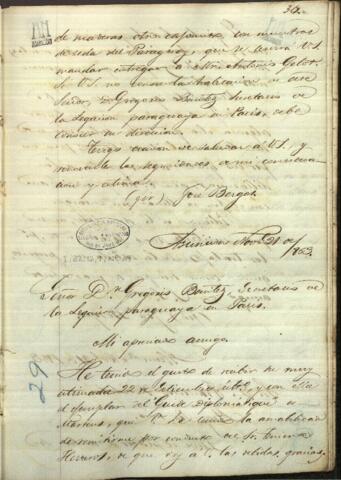 de maderas otro cajoncito con muestras
de seda del Paraguay, que se servirá V.S.
mandar entregar a
Si V.S. no conoce la habitacion de ese
Señor, D. Gregorio Benites Secretario de
la Legacion paraguaya en Paris, debe
conocer su direccion.
Tengo ocasion de saludar a V.S. y
renovarle las seguridades de mi considera-
cion y estima.
José Berges
Asuncion Nov. 21 de
1863.
Señor D. Gregorio Benites, Secretario de
la Legacion paraguaya en Paris.
Mi apreciado amigo.
29
He tenido el gusto de recibir su muy
estimada 22 de Setiembre y con ella
el ejemplar del Guide diplomatique de
Martens, que V. ha tenido la amabilidad
de remitirme por conducto de
Herreros, de que doy a V. las debidas gracias.